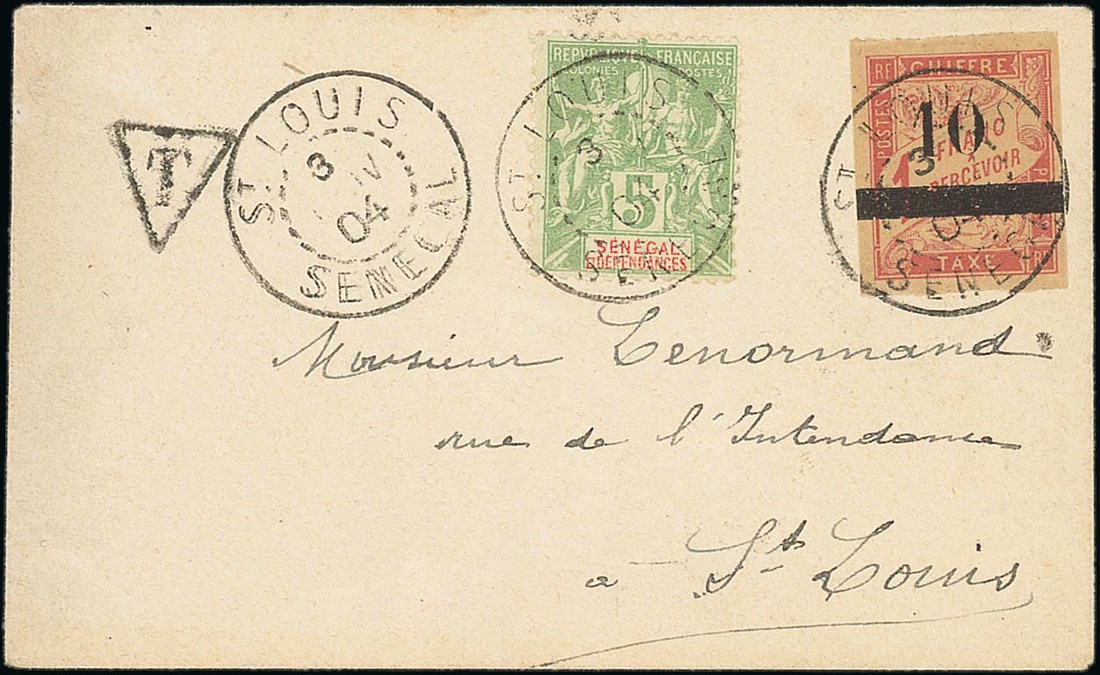 T
ST LOUIS
3
04
SENEGAL
REPUBLIQUE FRANÇAISE
COLONIES POSTES
5
SÉNÉGAL
ET DÉPENDANCES
ST LOUIS
3
04
RF CHIFFRE
POSTES
10
FRANC
À
PERCEVOIR
TAXE
3
04
Monsieur Lenormand
rue de l'Intendance
à St Louis